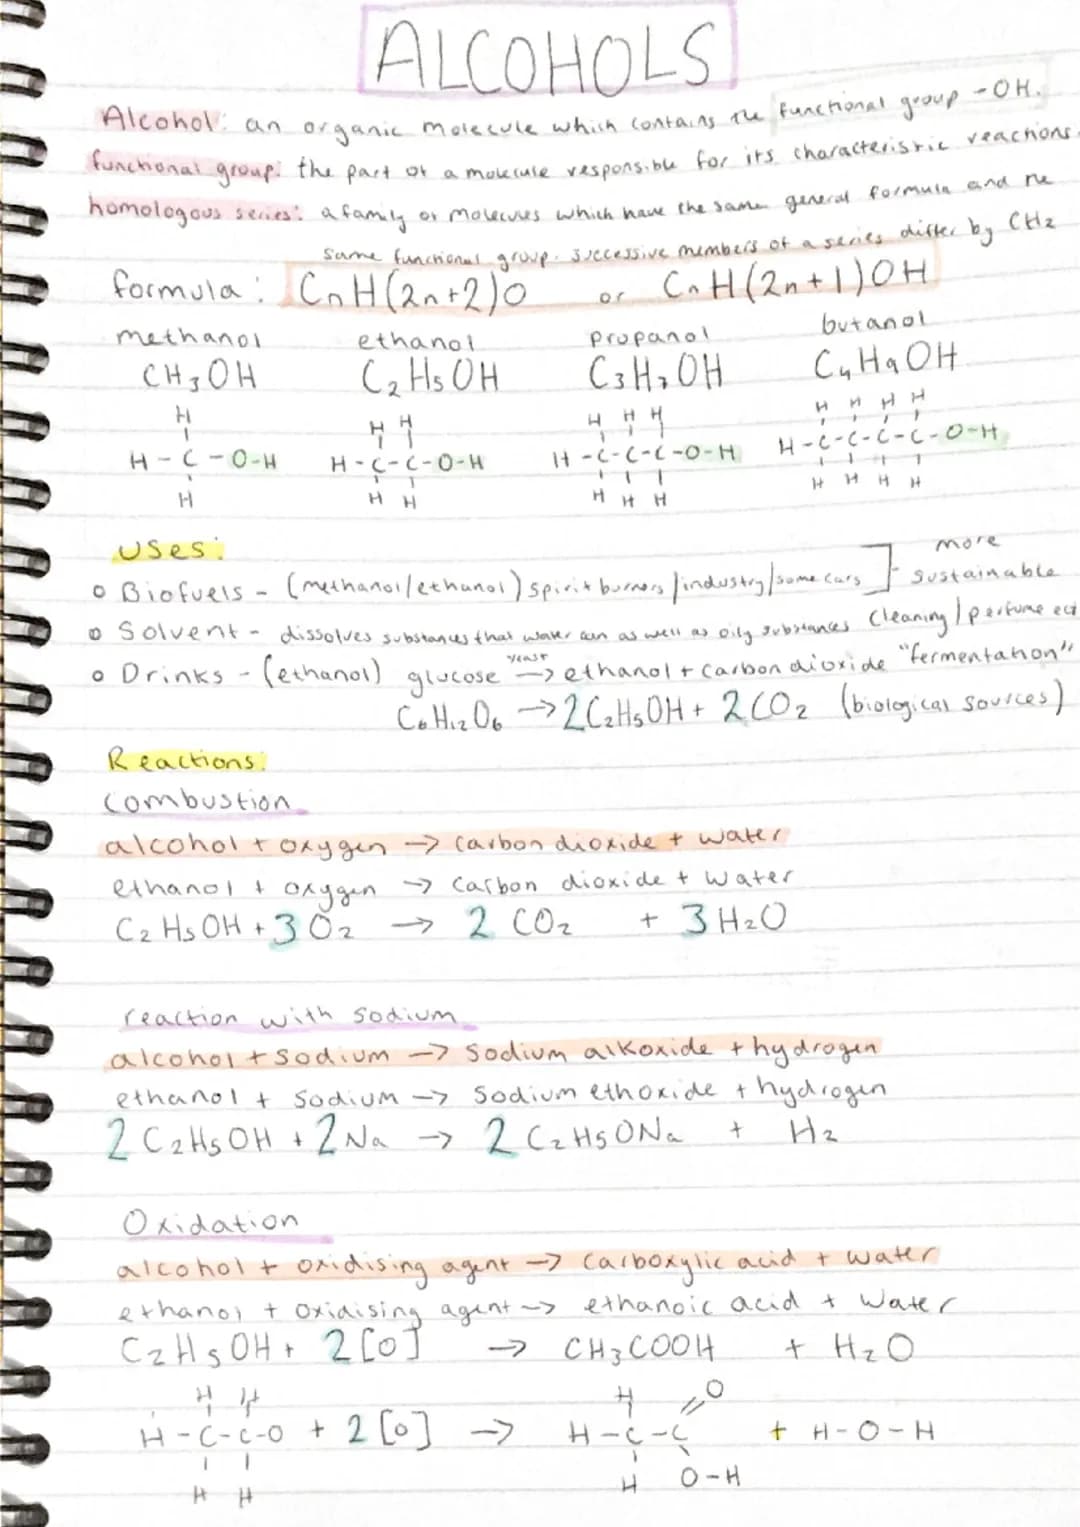 ALCOHOLS
Alcohol: an organic molecule which contains the functional group -OH.
functional group: the part of a molecule responsible for its characteristic reactions.
homologous series: a family of molecules which have the same general formula and the
same functional group. successive members of a series differ by CH2
formula: CnH(2n+2)O or CnH(2n+1)OH
methanol ethanol propanol butanol
CH3OH C2H5OH C3H7OH C4H9OH
H H H H H H H H H H
H-C-O-H H-C-C-O-H H-C-C-C-O-H H-C-C-C-C-O-H
H H H H H H H H H H
Uses:
o Biofuels - (methanol/ethanol) spirit burners/industry/some cars ]- more sustainable
o Solvent - dissolves substances that water can as well as oily substances cleaning/perfume ect
o Drinks - (ethanol) glucose yeast -> ethanol + carbon dioxide "fermentation"
C6H12O6 -> 2C2H5OH + 2CO2 (biological sources)
Reactions:
combustion
alcohol + oxygen -> carbon dioxide + water
ethanol + oxygen -> carbon dioxide + water
C2H5OH + 3O2 -> 2CO2 + 3H2O
reaction with sodium
alcohol + sodium -> sodium alkoxide + hydrogen
ethanol + sodium -> sodium ethoxide + hydrogen
2C2H5OH + 2Na -> 2C2H5ONa + H2
Oxidation
alcohol + oxidising agent -> carboxylic acid + water
ethanol + oxidising agent -> ethanoic acid + water
C2H5OH + 2[O] -> CH3COOH + H2O
H H H O
H-C-C-O + 2[O] -> H-C-C + H-O-H
H H H O-H